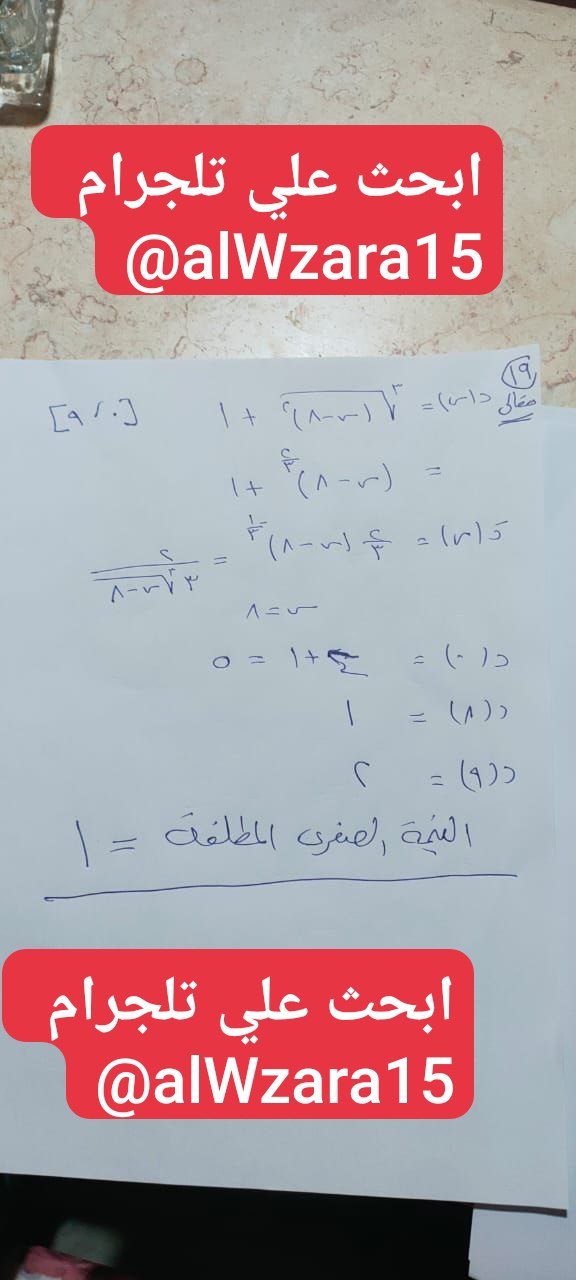 ابحث علي تلجرام
@alWzara15
١٩
مقالى د(س) = ∛(س-٨)² + ١ [٠، ٩]
= (س-٨)^(٢/٣) + ١
دَ(س) = ٢/٣ (س-٨)^(-١/٣) = ٢/(٣ ∛(س-٨))
س = ٨
د(٠) = ٤ + ١ = ٥
د(٨) = ١
د(٩) = ٢
القيمة الصغرى المطلقة = ١
ابحث علي تلجرام
@alWzara15